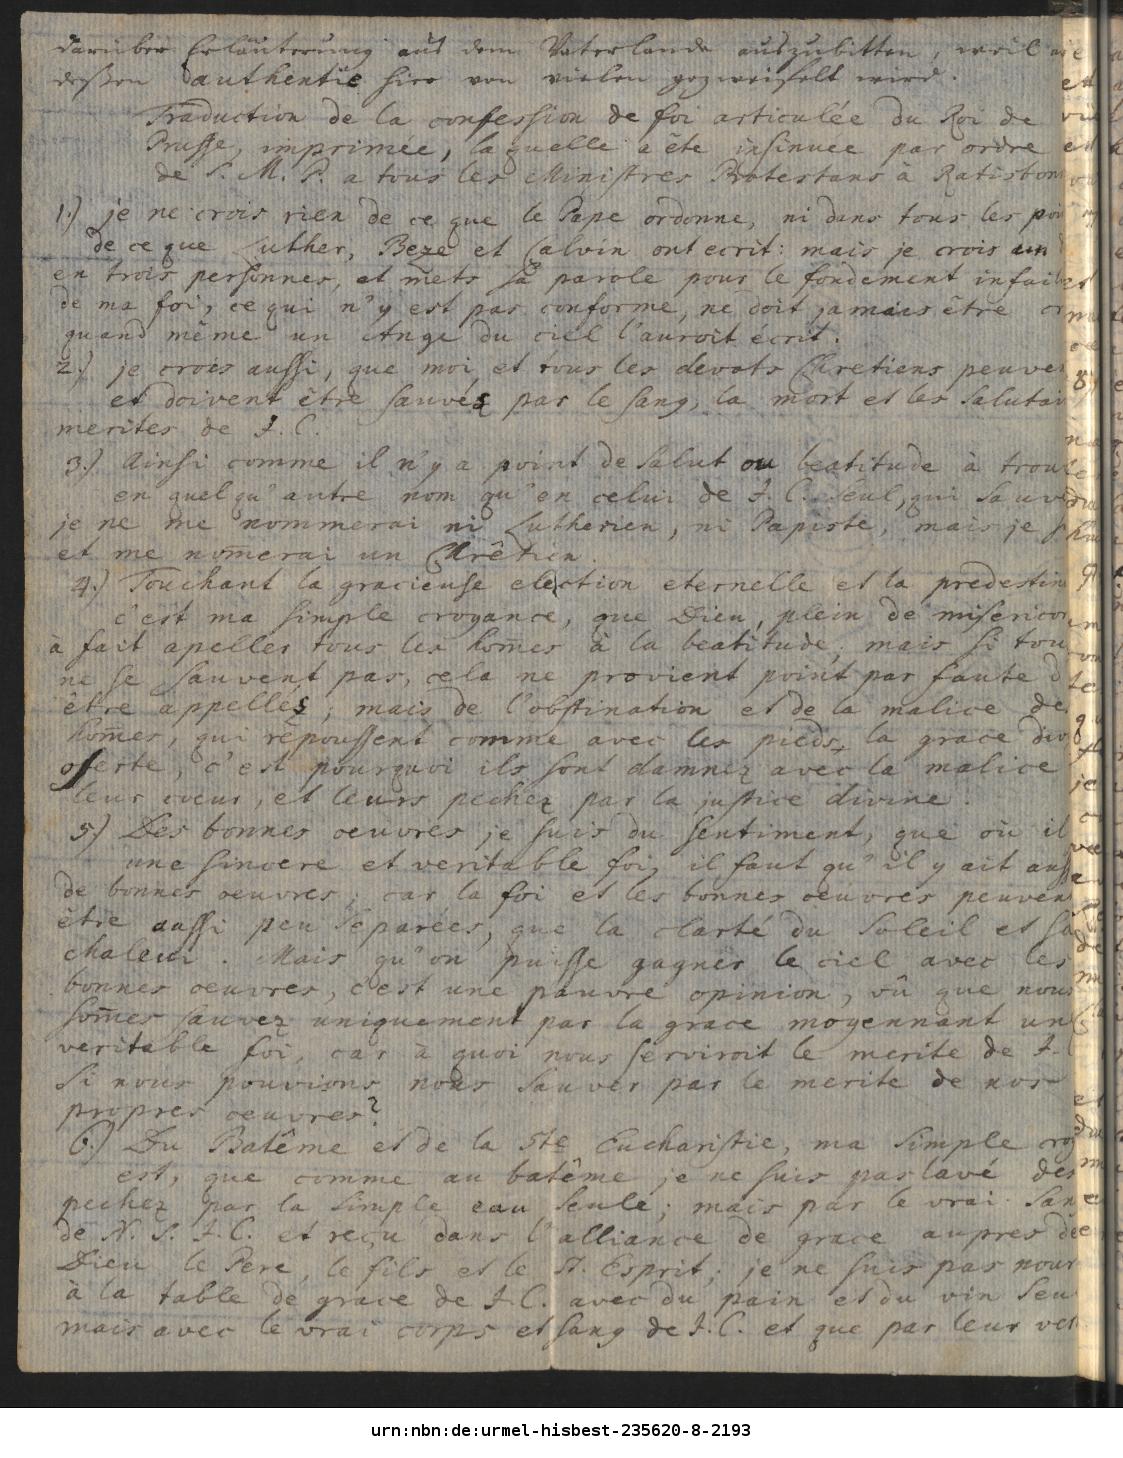 darüber Erläuterung aus dem Vaterlande auszubitten, weil
deßen authentie hier von vielen gezweifelt wird.
Traduction de la confession de foi articulée du Roi de
Prusse, imprimée, laquelle a ête insinuée par ordre
de S. M. P. a tous les Ministres Protestans à Ratisbon
1.) je ne crois rien de ce que le Pape ordonne, ni dans tous les poi
de ce que Luther, Beze et Calvin ont ecrit: mais je crois un
en trois personnes, et mets sa parole pour le fondement infail
de ma foi, ce qui n'y est pas conforme, ne doit jamais être cr
quand même un Ange du ciel l'auroit écrit.
2.) je crois aussi, que moi et tous les devots Chretiens peuve
et doivent être sauvés par le sang, la mort et les salutai
merites de J. C.
3.) Ainsi comme il n'y a point de salut ou beatitude à trou
en quelqu'autre nom qu'en celui de J. C. seul, qui sauv
je ne me nommerai ni Lutherien, ni Papiste, mais je
et me nom̄erai un Chrêtien.
4.) Touchant la gracieuse election eternelle et la predestin
c'est ma simple croyance, que Dieu, plein de misericor
à fait apeller tous les hom̄es à la beatitude, mais si tou
ne se sauvent pas, cela ne provient point par faute d
être appellés; mais de l'obstination et de la malice de
hom̄es, qui repoussent comme avec les pieds, la grace div
oferte, c'est pourquoi ils sont damnez avec la malice
leur coeur, et leurs pechez par la justice divine.
5) Des bonnes oeuvres je suis du sentiment, que où il
une sincere et veritable foi, il faut qu'il y ait auss
de bonnes oeuvres; car la foi et les bonnes oeuvres peuven
être aussi peu separées, que la clarté du Soleil et sa
chaleur. Mais qu'on puisse gagner le ciel avec les
bonnes oeuvres, c'est une pauvre opinion, vû que nous
som̄es sauvez uniquement par la grace moyennant un
veritable foi, car à quoi nous serviroit le merite de J.
si nous pouvions nous sauver par le merite de nos
propres oeuvres?
6.) Du Batême et de la Ste Eucharistie, ma simple cro
est, que comme au batême je ne suis pas lavé des
pechez par la simple eau seule; mais par le vrai san
de N. S. J. C. et reçu dans l'alliance de grace aupres de
Dieu le Pere, le fils et le St. Esprit; je ne suis pas nour
à la table de grace de J. C. avec du pain et du vin seu
mais avec le vrai corps et sang de J. C. et que par leur ver
urn:nbn:de:urmel-hisbest-235620-8-2193